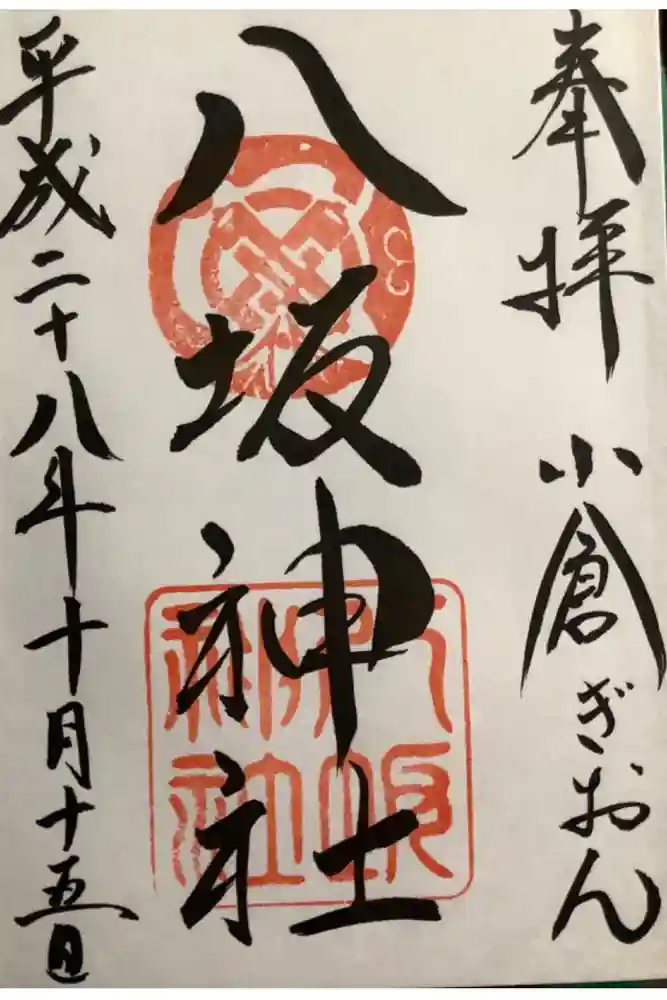 奉拝 小倉ぎおん
八坂神社
平成二十八年十月十五日
八坂
神社